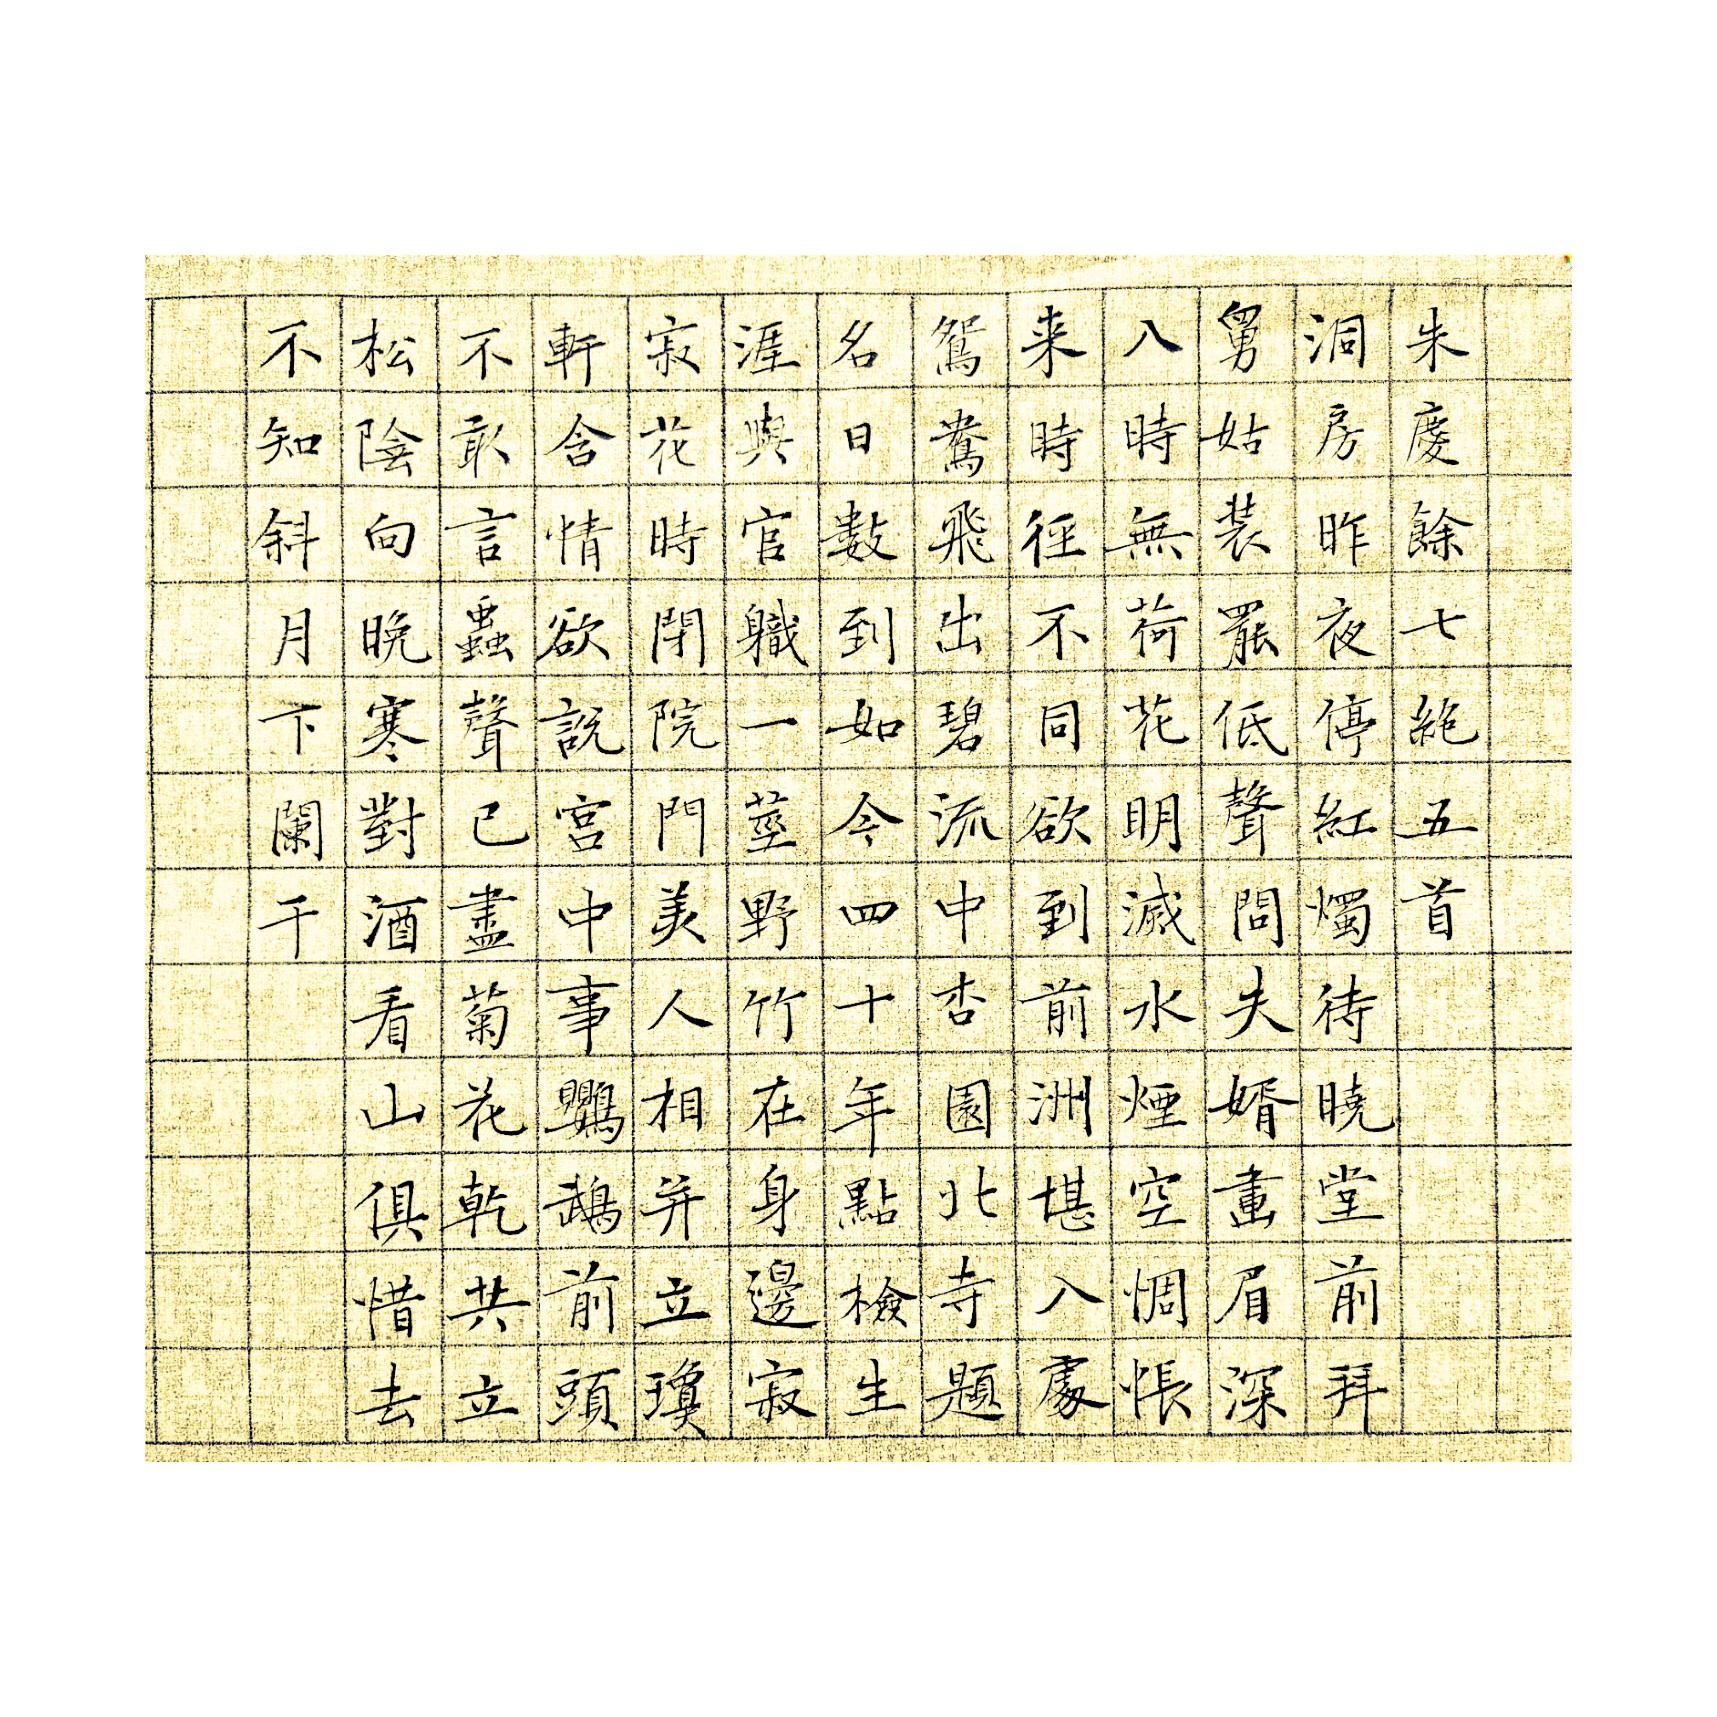 朱慶餘七絶五首
洞房昨夜停紅燭待曉堂前拜
舅姑装罷低聲問夫婿畫眉深
入時無荷花明滅水煙空惆悵
来時徑不同欲到前洲堪入處
鴛鴦飛出碧流中杏園北寺題
名日數到如今四十年點檢生
涯與官職一莖野竹在身邊寂
寂花時閉院門美人相并立瓊
軒含情欲説宮中事鸚鵡前頭
不敢言蟲聲已盡菊花乾共立
松陰向晚寒對酒看山俱惜去
不知斜月下闌干